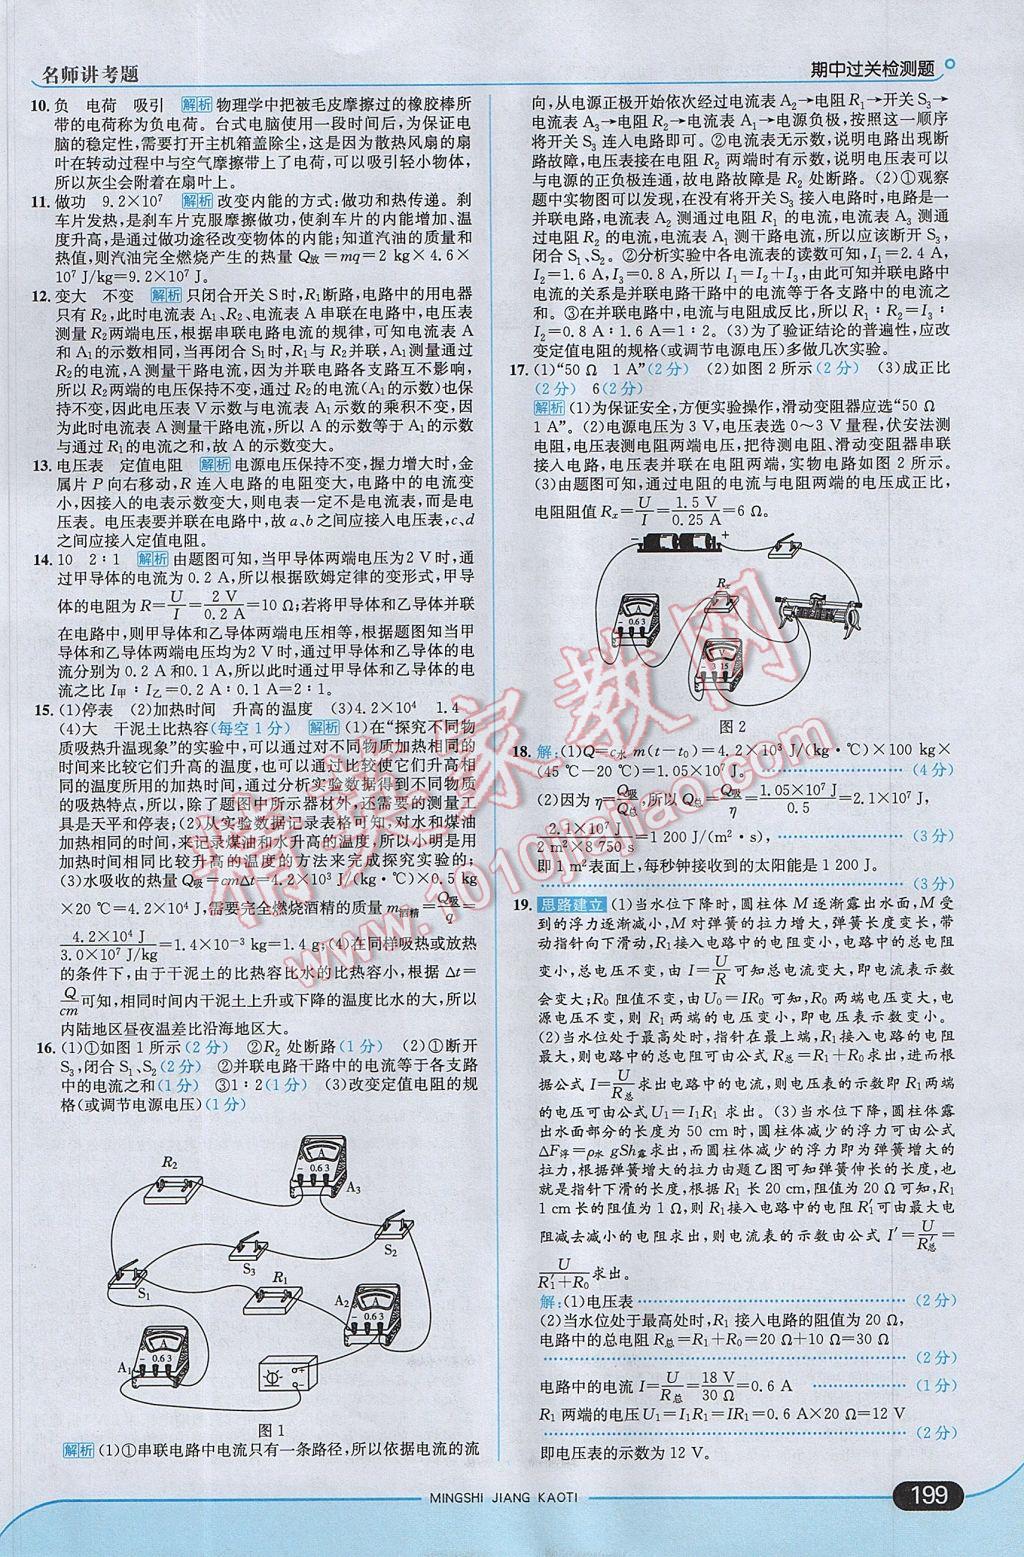 名师讲考题
期中过关检测题
10. 负 电荷 吸引 解析 物理学中把被毛皮摩擦过的橡胶棒所
带的电荷称为负电荷。台式电脑使用一段时间后,为保证电
脑的稳定性,需要打开主机箱盖除尘,这是因为散热风扇的扇
叶在转动过程中与空气摩擦带上了电荷,可以吸引轻小物体,
所以灰尘会附着在扇叶上。
11. 做功 9.2×10⁷ 解析 改变内能的方式:做功和热传递。刹
车片发热,是刹车片克服摩擦做功,使刹车片的内能增加、温
度升高,是通过做功途径改变物体的内能;知道汽油的质量和
热值,则汽油完全燃烧产生的热量 Q放=mq=2 kg×4.6×
10⁷ J/kg=9.2×10⁷ J。
12. 变大 不变 解析 只闭合开关 S 时,R₁断路,电路中的用电器
只有 R₂,此时电流表 A₁、R₂、电流表 A 串联在电路中,电压表
测量 R₂两端电压,根据串联电路电流的规律,可知电流表 A
和 A₁的示数相同,当再闭合 S₁时,R₁与 R₂并联,A₁测量通过
R₂的电流,A 测量干路电流,因为并联电路各支路互不影响,
所以 R₂两端的电压保持不变,通过 R₂的电流(A₁的示数)也保
持不变,因此电压表 V 示数与电流表 A₁示数的乘积不变,因
为此时电流表 A 测量干路电流,所以 A 的示数等于 A₁的示数
与通过 R₁的电流之和,故 A 的示数变大。
13. 电压表 定值电阻 解析 电源电压保持不变,握力增大时,金
属片 P 向右移动,R 连入电路的电阻变大,电路中的电流变
小,因接入的电表示数变大,则电表一定不是电流表,而是电
压表。电压表要并联在电路中,故 a、b 之间应接入电压表,c、d
之间应接入定值电阻。
14. 10 2∶1 解析 由题图可知,当甲导体两端电压为 2 V 时,通
过甲导体的电流为 0.2 A,所以根据欧姆定律的变形式,甲导
体的电阻为 R=U/I=2 V/0.2 A=10 Ω;若将甲导体和乙导体并联
在电路中,则甲导体和乙导体两端电压相等,根据题图知当甲
导体和乙导体两端电压均为2 V时,通过甲导体和乙导体的电
流分别为 0.2 A和0.1 A,所以此时通过甲导体和乙导体的电
流之比 I甲∶I乙=0.2 A∶0.1 A=2∶1。
15. (1)停表 (2)加热时间 升高的温度 (3)4.2×10⁴ 1.4
(4)大 干泥土比热容(每空 1 分) 解析 (1)在“探究不同物
质吸热升温现象”的实验中,可以通过对不同物质加热相同的
时间来比较它们升高的温度,也可以通过比较使它们升高相
同的温度所用的加热时间,通过分析实验数据得到不同物质
的吸热特点,所以,除了题图中所示器材外,还需要的测量工
具是天平和停表;(2)从实验数据记录表格可知,对水和煤油
加热相同的时间,来记录煤油和水升高的温度,所以小明是用
加热时间相同比较升高的温度的方法来完成探究实验的;
(3)水吸收的热量 Q吸=cmΔt=4.2×10³ J/(kg·℃)×0.5 kg
×20 ℃=4.2×10⁴ J,需要完全燃烧酒精的质量 m酒精=Q吸/q=
4.2×10⁴ J/3.0×10⁷ J/kg=1.4×10⁻³ kg=1.4 g;(4)在同样吸热或放热
的条件下,由于干泥土的比热容比水的比热容小,根据 Δt=
Q/cm可知,相同时间内干泥土上升或下降的温度比水的大,所以
内陆地区昼夜温差比沿海地区大。
16. (1)①如图 1 所示(2 分) ②R₂ 处断路(1 分) (2)①断开
S₃,闭合 S₁、S₂(2 分) ②并联电路干路中的电流等于各支路
中的电流之和(1 分) ③1∶2(1 分) (3)改变定值电阻的规
格(或调节电源电压)(1 分)
R₂
− 0.6 3
A₃
S₂
S₃
S₁
R₁
A₂
A
− 0.6 3
A₁
− 0.6 3
图 1
解析 (1)①串联电路中电流只有一条路径,所以依据电流的流
向,从电源正极开始依次经过电流表 A₂→电阻 R₁→开关 S₃→
电流表 A₃→电阻 R₂→电流表 A₁→电源负极,按照这一顺序
将开关 S₃ 连入电路即可。②电流表无示数,说明电路出现断
路故障,电压表接在电阻 R₂ 两端时有示数,说明电压表可以
与电源的正负极连通,故电路故障是 R₂ 处断路。(2)①观察
题中实物图可以发现,在没有将开关 S₃ 接入电路时,电路是一
并联电路,电流表 A₂ 测通过电阻 R₁ 的电流,电流表 A₃ 测通
过电阻 R₂ 的电流,电流表 A₁ 测干路电流,所以应该断开 S₃,
闭合 S₁、S₂。②分析实验中各电流表的读数可知,I₁=2.4 A,
I₂=1.6 A,I₃=0.8 A,所以 I₁=I₂+I₃,由此可知并联电路中
电流的关系是并联电路干路中的电流等于各支路中的电流之
和。③在并联电路中,电流与电阻成反比,所以 R₁∶R₂=I₃∶
I₂=0.8 A∶1.6 A=1∶2。(3)为了验证结论的普遍性,应改
变定值电阻的规格(或调节电源电压)多做几次实验。
17. (1)“50 Ω 1 A”(2 分) (2)如图 2 所示(2 分) (3)成正比
(2 分) 6(2 分)
解析 (1)为保证安全,方便实验操作,滑动变阻器应选“50 Ω
1 A”。(2)电源电压为 3 V,电压表选 0～3 V 量程,伏安法测
电阻,电压表测电阻两端电压,把待测电阻、滑动变阻器串联
接入电路,电压表并联在电阻两端,实物电路如图 2 所示。
(3)由题图可知,通过电阻的电流与电阻两端的电压成正比,
电阻阻值 Rₓ=U/I=1.5 V/0.25 A=6 Ω。
− +
Rₓ
A
− 0.6 3
V
− 3 15
图 2
18. 解:(1)Q=c水m(t−t₀)=4.2×10³ J/(kg·℃)×100 kg×
(45 ℃−20 ℃)=1.05×10⁷ J。(4 分)
(2)因为 η=Q吸/Q总,所以 Q总=Q吸/η=1.05×10⁷ J/0.5=2.1×10⁷ J,
2.1×10⁷ J/2 m²×8 750 s=1 200 J/(m²·s),(3 分)
即 1 m²表面上,每秒钟接收到的太阳能是 1 200 J。
(3 分)
19. 思路建立 (1)当水位下降时,圆柱体 M 逐渐露出水面,M受
到的浮力逐渐减小,M对弹簧的拉力增大,弹簧长度变长,带
动指针向下滑动,R₁接入电路中的电阻变小,电路中的总电阻
变小,总电压不变,由 I=U/R可知总电流变大,即电流表示数
会变大;R₀ 阻值不变,由U₀=IR₀ 可知,R₀ 两端电压变大,电
源电压不变,则 R₁ 两端的电压变小,即电压表示数变小。
(2)当水位处于最高处时,指针在最上端,R₁接入电路的电阻
最大,则电路中的总电阻可由公式 R总=R₁+R₀求出,进而根
据公式 I=U/R总求出电路中的电流,则电压表的示数即 R₁两端
的电压可由公式U₁=I₁R₁ 求出。(3)当水位下降,圆柱体露
出水面部分的长度为 50 cm 时,圆柱体减少的浮力可由公式
ΔF浮=ρ水 gSh露求出,而圆柱体减少的浮力即为弹簧增大的
拉力,根据弹簧增大的拉力由题乙图可知弹簧伸长的长度,也
就是指针下滑的长度,根据 R₁ 长 20 cm,阻值为 20 Ω可知,R₁
1 cm长的阻值为 1 Ω,则 R₁接入电路中的电阻 R₁′可由最大电
阻减去减小的电阻求出,则电流表的示数由公式 I′=U/R总′=
U/R₁′+R₀求出。
解:(1)电压表(2 分)
(2)当水位处于最高处时,R₁ 接入电路的阻值为 20 Ω,
电路中的总电阻 R总=R₁+R₀=20 Ω+10 Ω=30 Ω
(2 分)
电路中的电流 I=U/R总=18 V/30 Ω=0.6 A(1 分)
R₁ 两端的电压U₁=I₁R₁=IR₁=0.6 A×20 Ω=12 V
(2 分)
即电压表的示数为 12 V。
精英家教网
www.1010jiajiao.com
MINGSHI JIANG KAOTI
199